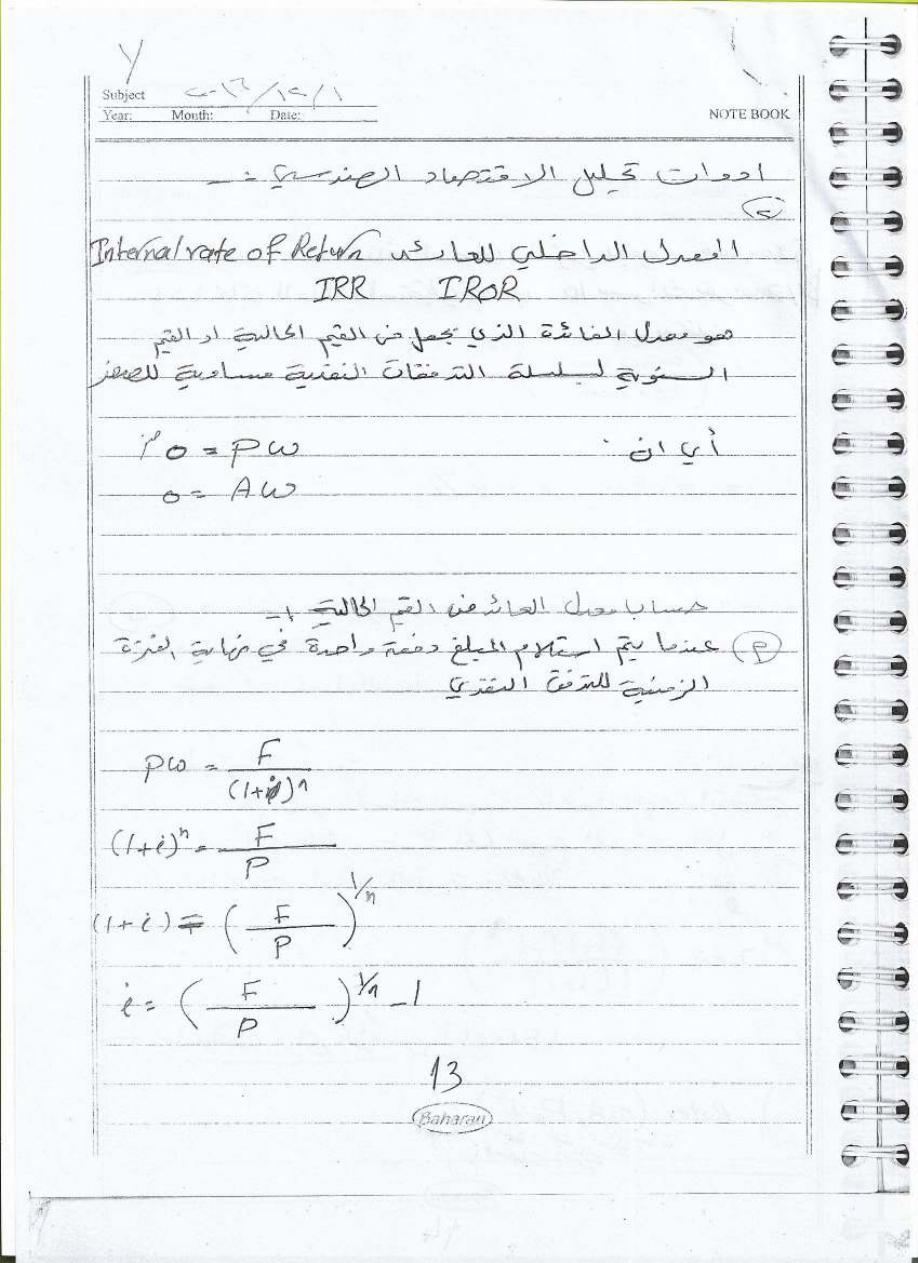 ٧
Subject
٢٠١٣/١٢/١
Year: Month: Date:
NOTE BOOK
ادوات تحليل الاقتصاد الهندسي :-
٢
المعدل الداخلي للعائد Internal rate of Return
IRR IROR
هو معدل الفائدة الذي يجعل من القيم الحالية او القيم
السنوية لسلسلة التدفقات النقدية مساوية للصفر
أي ان :
0 = PW
0 = AW
حساب معدل العائد من القيم الحالية :-
عندما يتم استلام المبلغ دفعة واحدة في نهاية الفترة
الزمنية للتدفق النقدي
PW = F / (1+i)^n
(1+i)^n = F / P
(1+i) = (F / P)^1/n
i = (F / P)^1/n - 1
13
Baharan